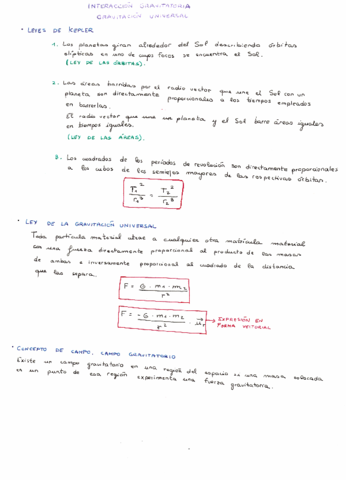 INTERACCIÓN GRAVITATORIA
GRAVITACIÓN UNIVERSAL
• LEYES DE KEPLER
1. Los planetas giran alrededor del Sol describiendo órbitas
elípticas en uno de cuyos focos se encuentra el Sol.
(LEY DE LAS ÓRBITAS).
2. Las áreas barridas por el radio vector que une el Sol con un
planeta son directamente proporcionales a los tiempos empleados
en barrerlas.
El radio vector que une un planeta y el Sol barre áreas iguales
en tiempos iguales.
(LEY DE LAS ÁREAS).
3. Los cuadrados de los periodos de revolución son directamente proporcionales
a los cubos de los semiejes mayores de las respectivas órbitas.
T₁²/r₁³ = T₂²/r₂³
• LEY DE LA GRAVITACIÓN UNIVERSAL
Toda partícula material atrae a cualquier otra partícula material
con una fuerza directamente proporcional al producto de las masas
de ambas e inversamente proporcional al cuadrado de la distancia
que las separa.
F = G · m₁ · m₂ / r²
F = - G · m₁ · m₂ / r² · u⃗r → EXPRESIÓN EN
FORMA VECTORIAL
• CONCEPTO DE CAMPO, CAMPO GRAVITATORIO
Existe un campo gravitatorio en una región del espacio si una masa colocada
en un punto de esa región experimenta una fuerza gravitatoria.